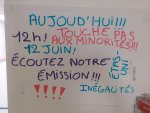 AUJOUD'HUI!!!
12h! TOUCHE PAS
AUX MINORITÉS!!!
12 JUIN!
ÉCOUTEZ NOTRE
ÉMISSION!!!
ÉTAS-
UNI
!!!!
INÉGALITÉS